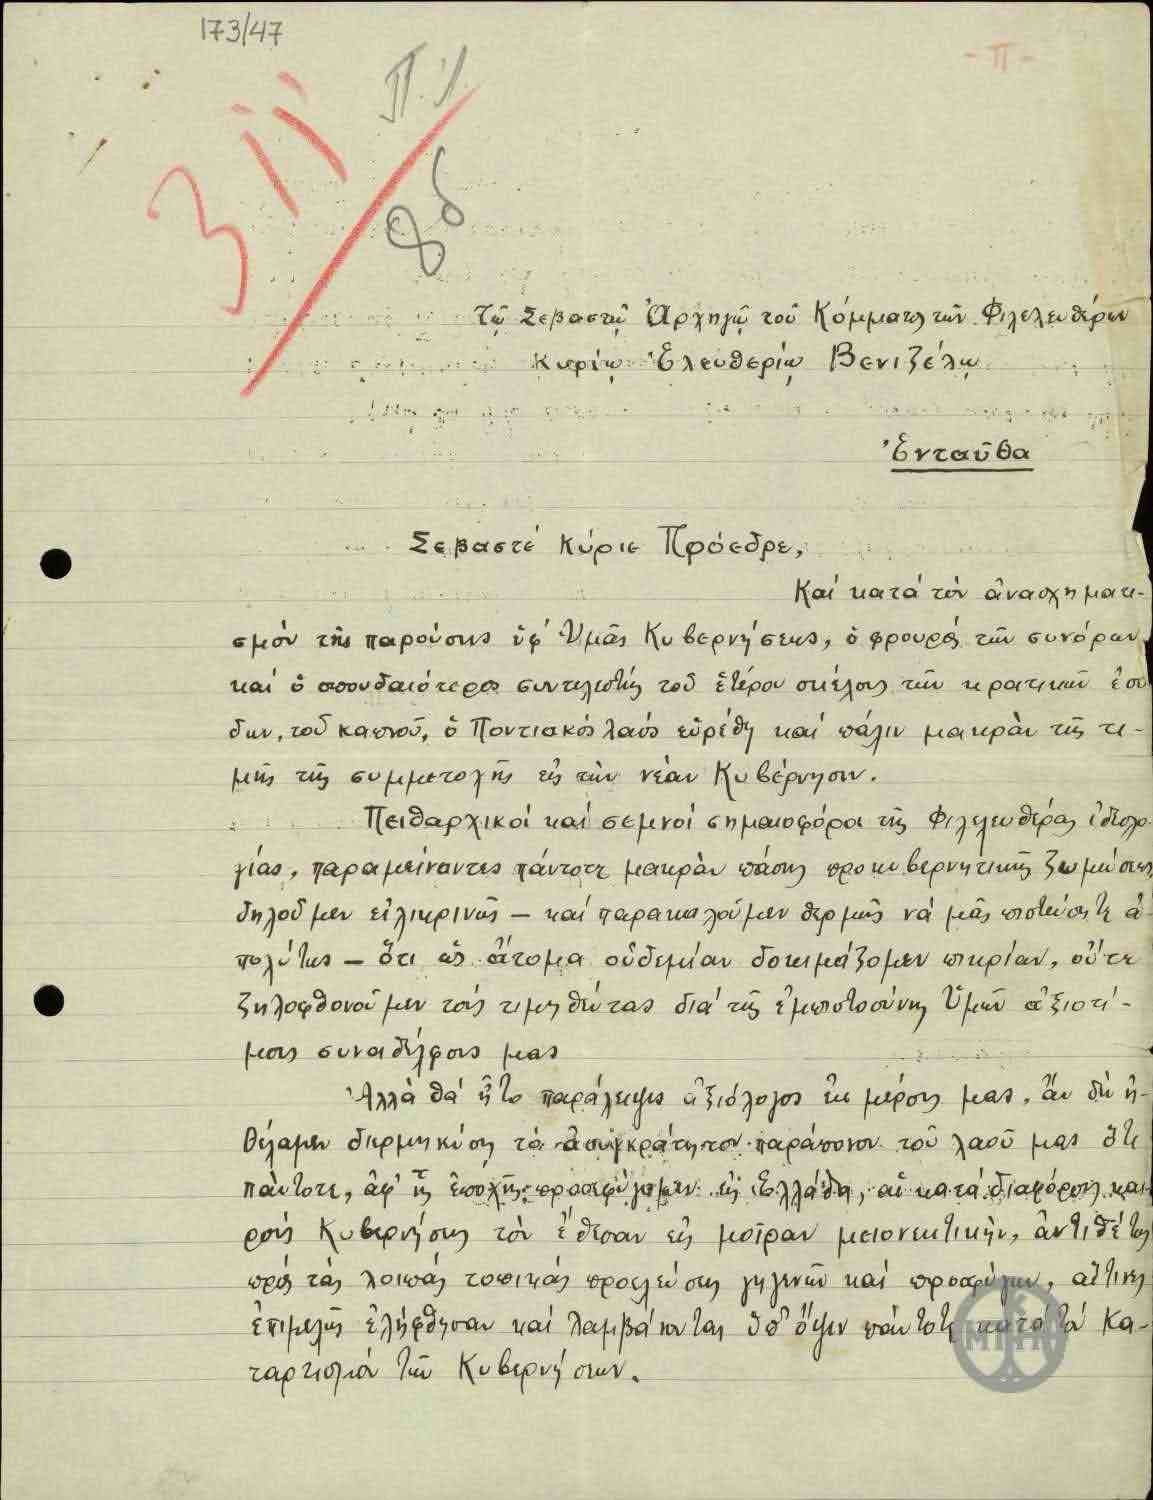 173/47
- Π -
Π. Λ.
Τῷ Σεβαστῷ Ἀρχηγῷ τοῦ Κόμματος τῶν Φιλελευθέρων
Κυρίῳ Ἐλευθερίῳ Βενιζέλῳ
Ἐνταῦθα
Σεβαστέ Κύριε Πρόεδρε,
Καί κατά τόν ἀνασχηματι-
σμόν τῆς παρούσης ὑφ' Ὑμᾶς Κυβερνήσεως, ὁ φρουρός τῶν συνόρων
καί ὁ σπουδαιότερος συντελεστής τοῦ ἑτέρου σκέλους τῶν κρατικῶν ἐσό
δων, τοῦ καπνοῦ, ὁ Ποντιακός λαός εὑρέθη καί πάλιν μακράν τῆς τι-
μῆς τῆς συμμετοχῆς εἰς τήν νέαν Κυβέρνησιν.
Πειθαρχικοί καί σεμνοί σημαιοφόροι τῆς Φιλελευθέρας ἰδεολο-
γίας, παραμείναντες πάντοτε μακράν πάσης προκυβερνητικῆς ζυμώσεως,
δηλοῦμεν εἰλικρινῶς – καί παρακαλοῦμεν θερμῶς νά μᾶς πιστεύσητε ἀ-
πολύτως – ὅτι ὡς ἄτομα οὐδεμίαν δοκιμάζομεν πικρίαν, οὔτε
ζηλοφθονοῦμεν τούς τιμηθέντας διά τῆς ἐμπιστοσύνης Ὑμῶν ἀξιοτί-
μους συναδέλφους μας
Ἀλλά θά ἦτο παράλειψις ἀξιόλογος ἐκ μέρους μας, ἄν δέν ἠ-
θέλαμεν διερμηνεύσῃ τό ἀσυγκράτητον παράπονον τοῦ λαοῦ μας ὅτι
πάντοτε, ἀφ' ἧς ἐποχῆς προσεφύγαμεν εἰς Ἑλλάδα, αἱ κατά διαφόρους και-
ρούς Κυβερνήσεις τόν ἔθεσαν εἰς μοῖραν μειονεκτικήν, ἀντιθέτως
πρός τάς λοιπάς τοπικάς προελεύσεις γηγενῶν καί προσφύγων, αἵτινες
ἐπιμελῶς ἐλήφθησαν καί λαμβάνονται ὑπ' ὄψιν πάντοτε κατά τόν Κα-
ταρτισμόν τῶν Κυβερνήσεων.